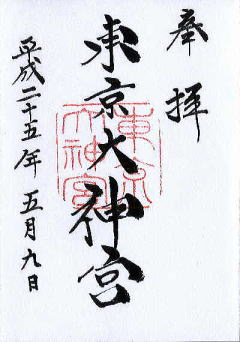 奉拝
東京大神宮
東京大神宮
平成二十五年五月九日